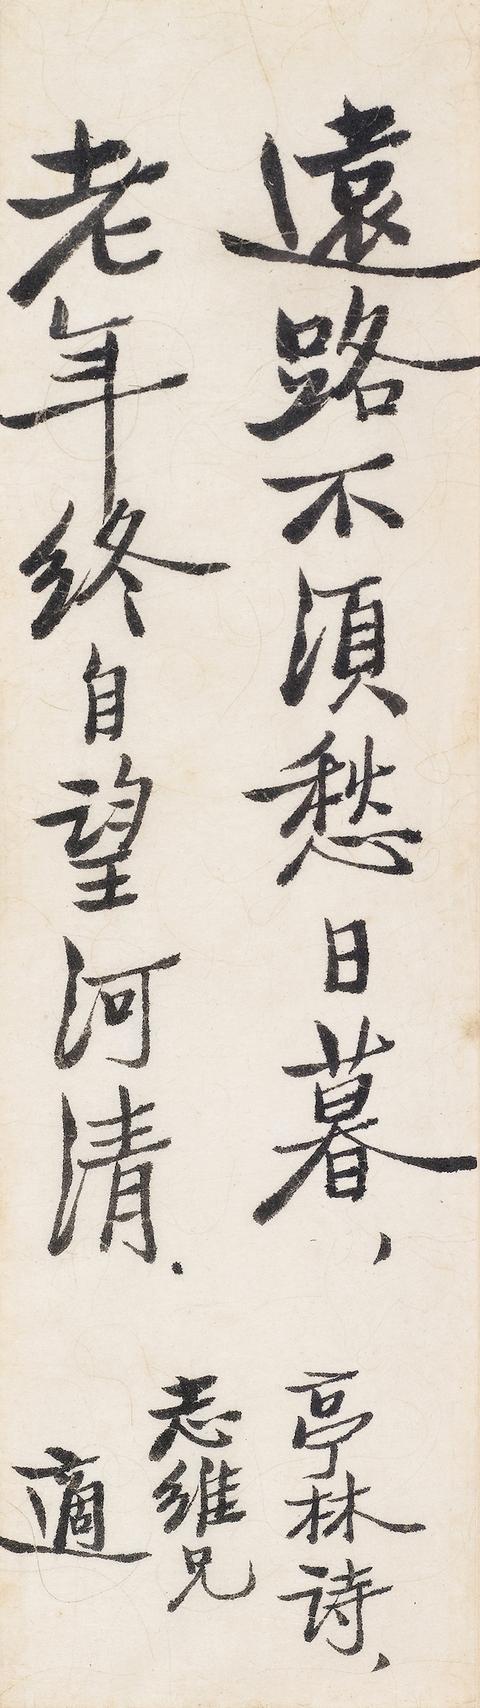 遠路不須愁日暮，
老年終自望河清．
亭林詩，
志維兄
適